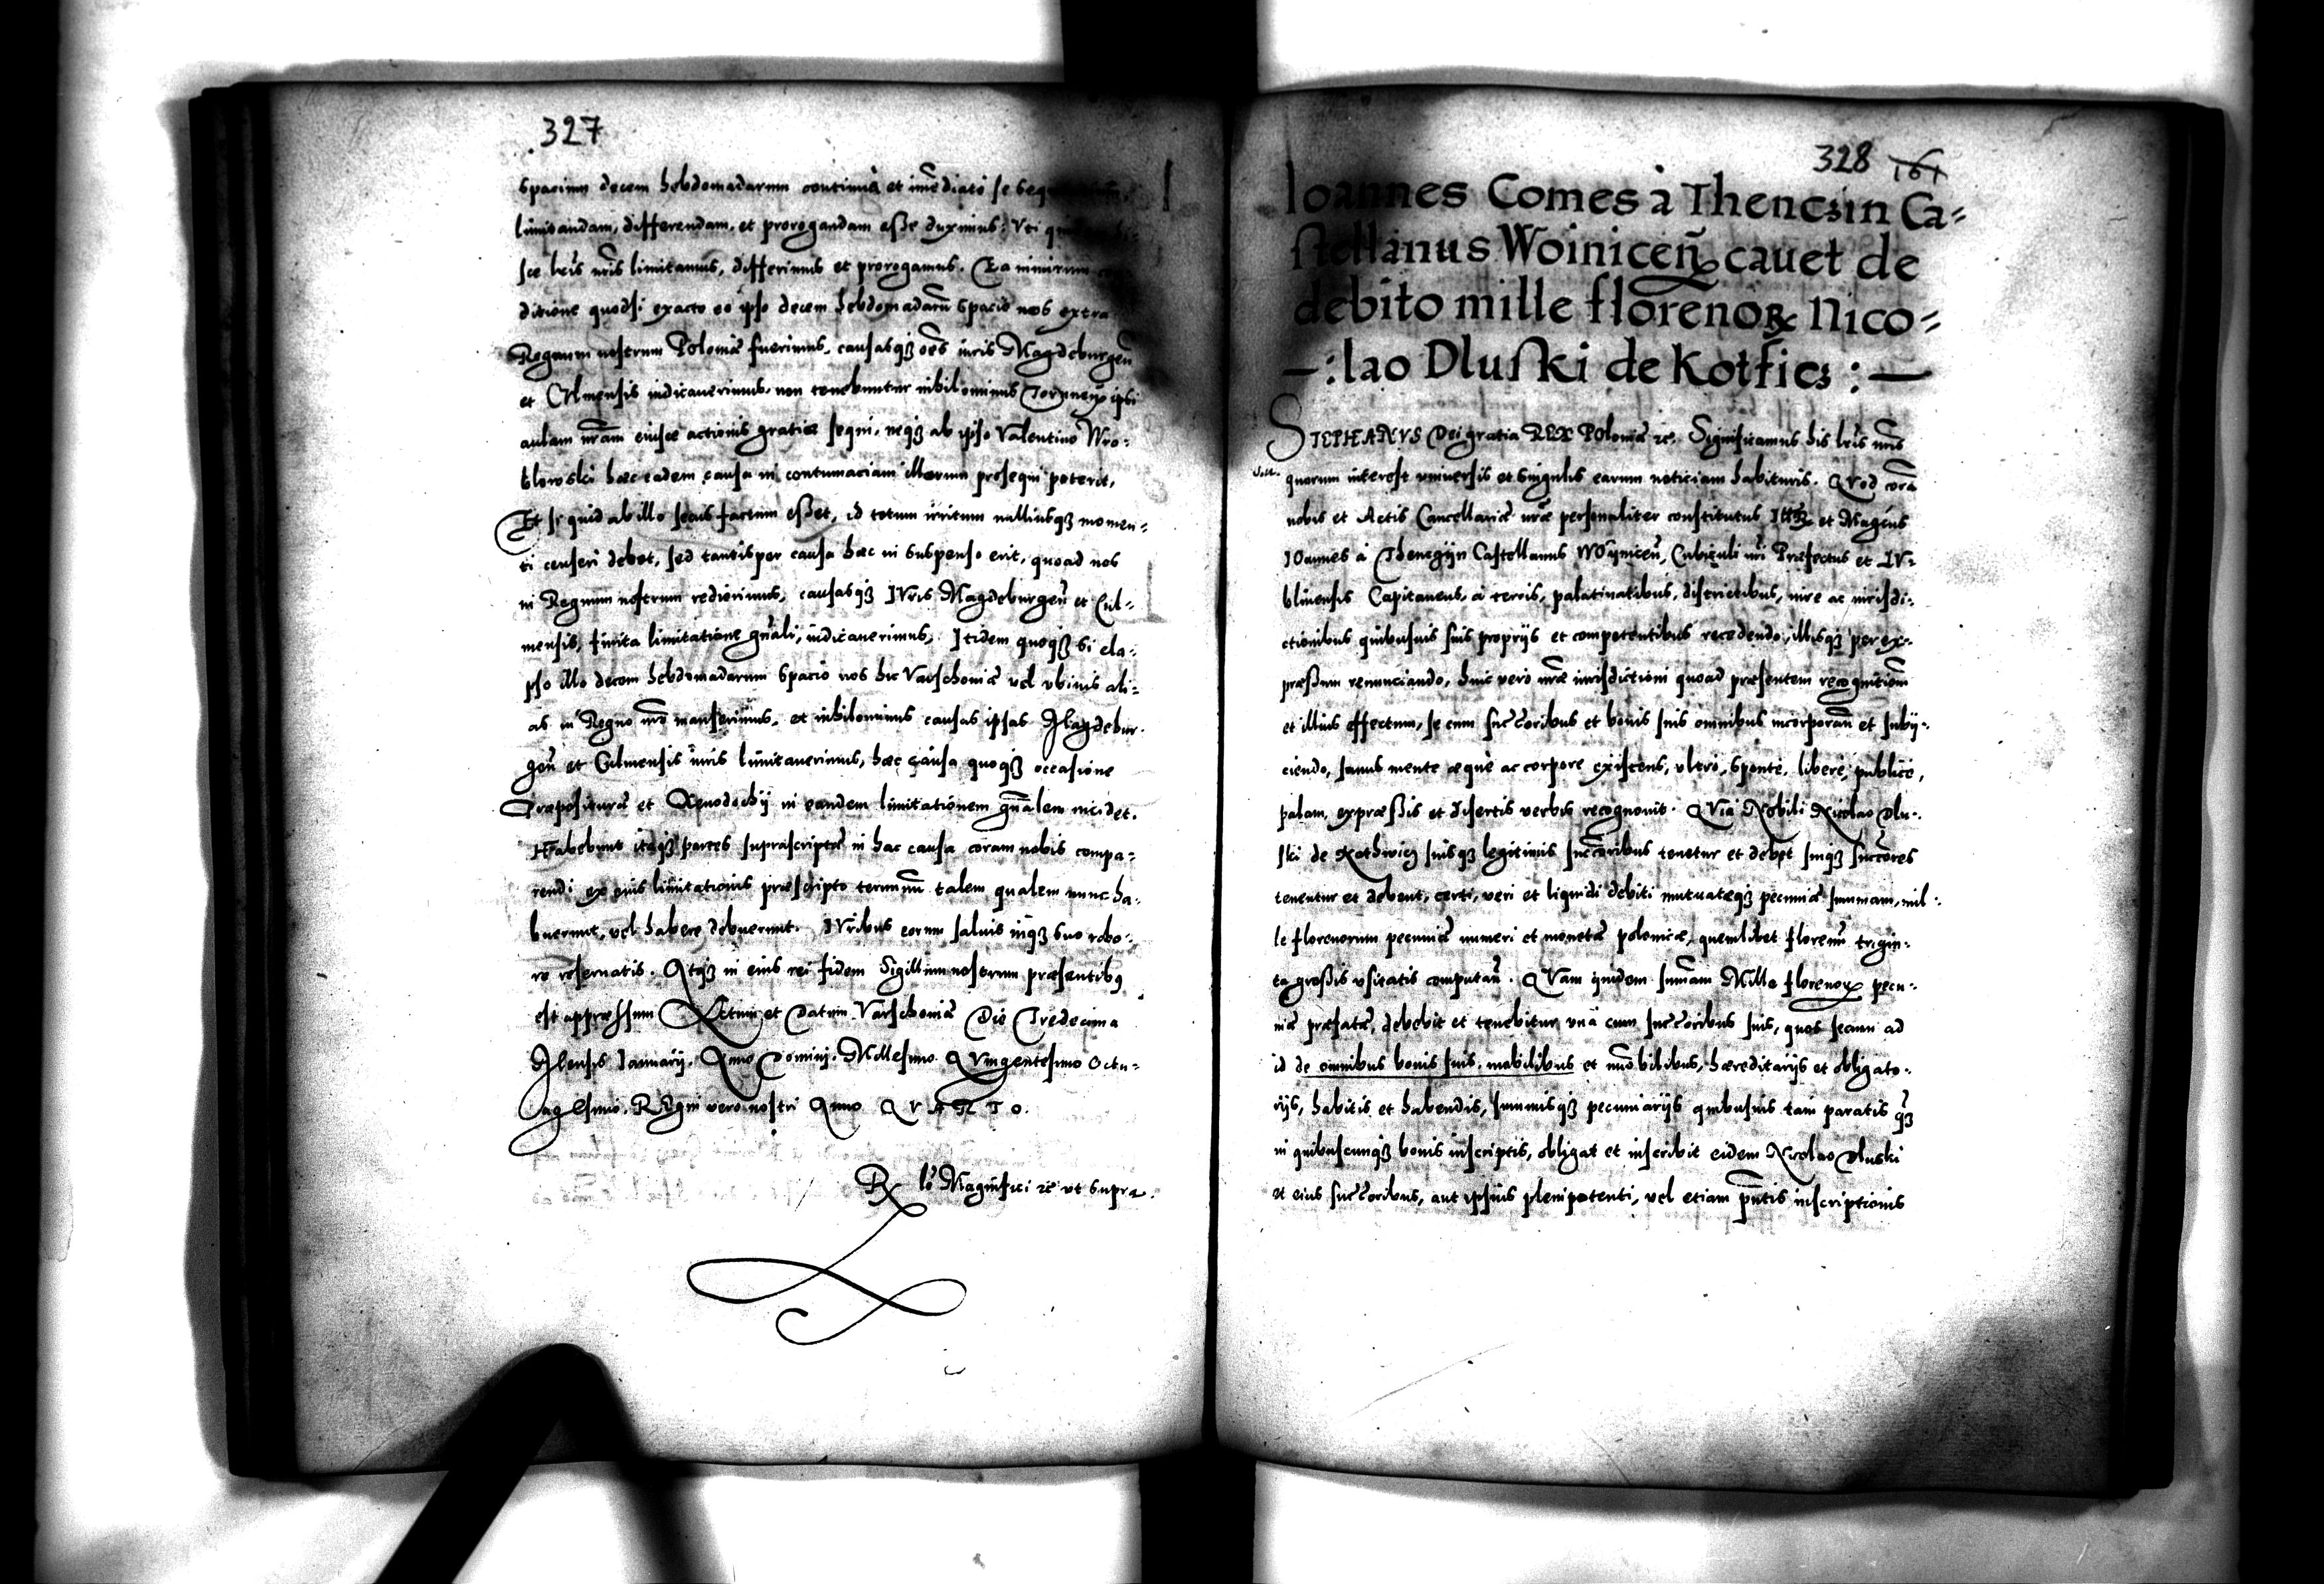 327
spacium decem hebdomadarum continuè et imediatè se
limitandam, differendam, et prorogandam esße duximus: Vti
sce lr̃is nr̃is limitamus, differimus et prorogamus. Ea nimirum
ditione quodsi exacto eo ipso decem hebdomadarũ spacio nos extra
Regnum nostrum Poloniæ fuerimus, causasqꝫ oẽs iuris Magdeburgeñ
et Culmensis iudicauerimus, non tenebuntur nihilominus ipsi
aulam nr̃am eiusce actionis gratia sequi, neqꝫ ab ipso Valentino Wro-
blowski hæc eadem causa in contumaciam illorum prosequi poterit,
Et si quid ab illo secus factum esßet, id totum irritum nulliusqꝫ momen-
ti censeri debet, sed tantisper causa hæc in suspenso erit, quoad nos
in Regnum nostrum redierimus, causasqꝫ IVris Magdeburgeñ et Cul-
mensis, finita limitatione gñali, iudicauerimus. Itidem quoqꝫ si ela-
pso illo decem hebdomadarum spacio nos hic Varschouiæ vel vbiuis ali-
as in Regno nr̃o manserimus, et nihilominus causas ipsas Magdebur-
geñ et Culmensis iuris limitauerimus, hæc causa quoqꝫ occasione
Præposituræ et Xenodochij in eandem limitationem gñalem incidet.
Habebunt itaqꝫ partes suprascriptæ in hac causa coram nobis compa-
rendi ex huius limitationis præscripto terminũ talem qualem nunc ha-
buerunt, vel habere debuerunt. IVribus eorum saluis inqꝫ suo robo-
re reseruatis. Atqꝫ in eius rei fidem Sigillum nostrum præsentibꝰ
est appressum Actum et Datum Varschouiæ Die Tredecima
Mensis Ianuarij. Anno Domini. Millesimo Quingentesimo Octu-
agesimo. REgni vero nostri Anno QVARTO.
Rẽlo Magnifici ꝛc̃ vt supra.
328 161
Ioannes Comes à Thenczin Ca-
stellanus Woiniceñ cauet de
debito mille florenoꝝ Nico-
-:lao Dluski de Kotficz:-
STEPHANVS Dei gratia REX POloniæ ꝛc̃. Significamus his lr̃is nr̃is
quorum interest vniuersis et singulis earum noticiam habituris. QVod corã
nobis et Actis Cancellariæ nr̃æ personaliter constitutus Illr̃ et Magcus
IOannes à Thenczyn Castellanus WOyniceñ, Cubiculi nr̃i Præfectus et LV-
blinensis Capitaneus, à terris, palatinatibus, districtibus, iure ac iurisdi-
ctionibus quibusuis suis proprijs et competentibus recedendo, illisqꝫ per ex-
præßum renunciando, huic vero nr̃æ iurisdictioni quoad præsentem recognitiom
et illius effectum, se cum succoribus et bonis suis omnibus incorporañ et subij-
ciendo, sanus mente æquè ac corpore existens, vltrò, sponte, liberè, publicè,
palam, expræßis et disertis verbis recognouit. QVia Nobili Nicolao Dlu-
ski de Kothwicz suisqꝫ legitimis succoribus tenetur et debet suiqꝫ succores
tenentur et debent, certi, veri et liquidi debiti mutuatæqꝫ pecuniæ summam, mil-
le florenorum pecuniæ numeri et monetæ polonicæ, quemlibet florenũ trigin-
ta großis vsitatis computañ. QVam quidem sum̃am Mille florenoꝝ pecu-
niæ præfatæ, debebit et tenebitur vnà cum succoribus suis, quos secum ad
id de omnibus bonis suis, mobilibus et im̃obilibus, hæreditarijs et obligato-
rijs, habitis et habendis, summisqꝫ pecuniarijs quibusuis tam paratis qꝫ
in quibuscunqꝫ bonis inscriptis, obligat et inscribit eidem Nicolao Dluski
et eius succoribus, aut ipsius plenipotenti, vel etiam pñtis inscriptionis